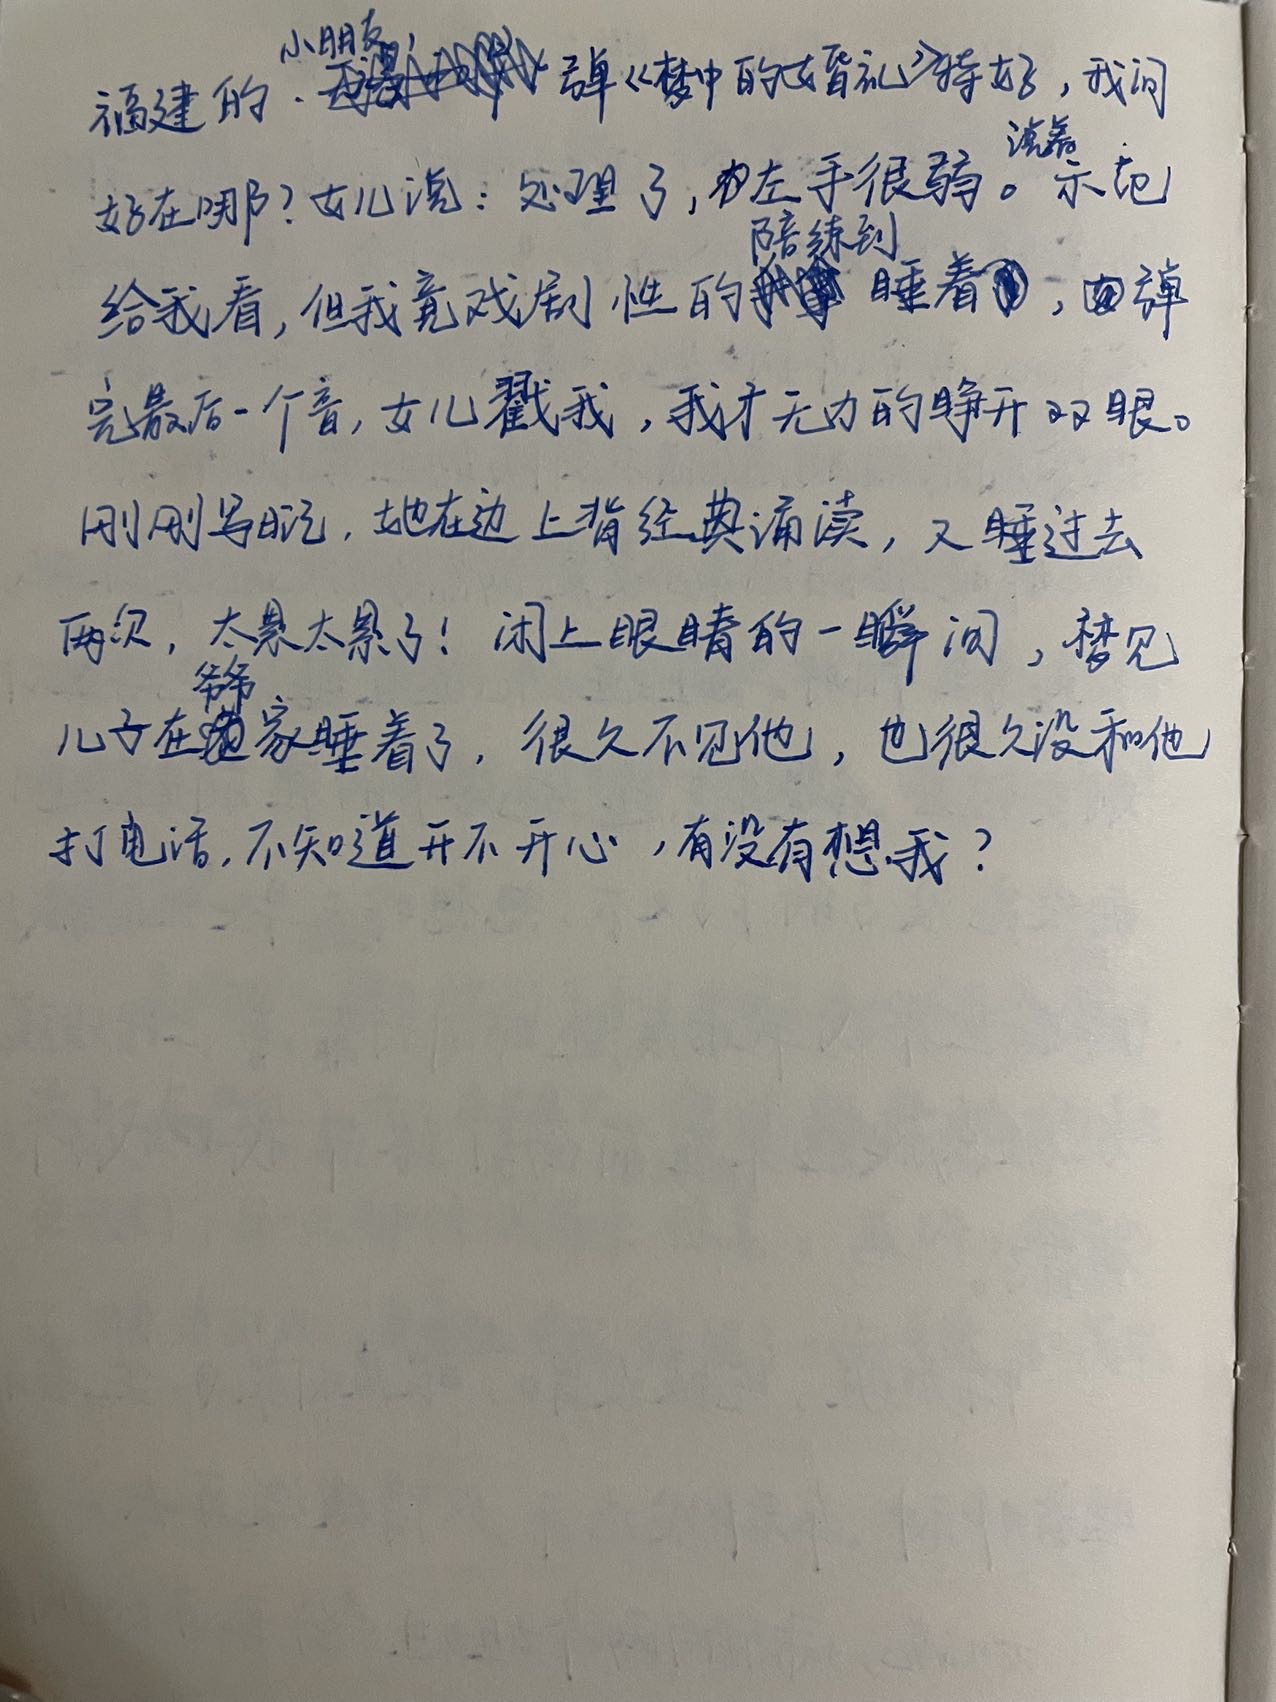 福建的小朋友，弹《梦中的婚礼》特好，我问
好在哪？女儿说：处理了，左手很弱。说着示范
给我看，但我竟戏剧性的陪练到睡着，弹
完最后一个音，女儿戳我，我才无力的睁开双眼。
刚刚写日记，她在边上背经典诵读，又睡过去
两次，太累太累了！闭上眼睛的一瞬间，梦见
儿子在爷爷家睡着了，很久不见他，也很久没和他
打电话，不知道开不开心，有没有想我？